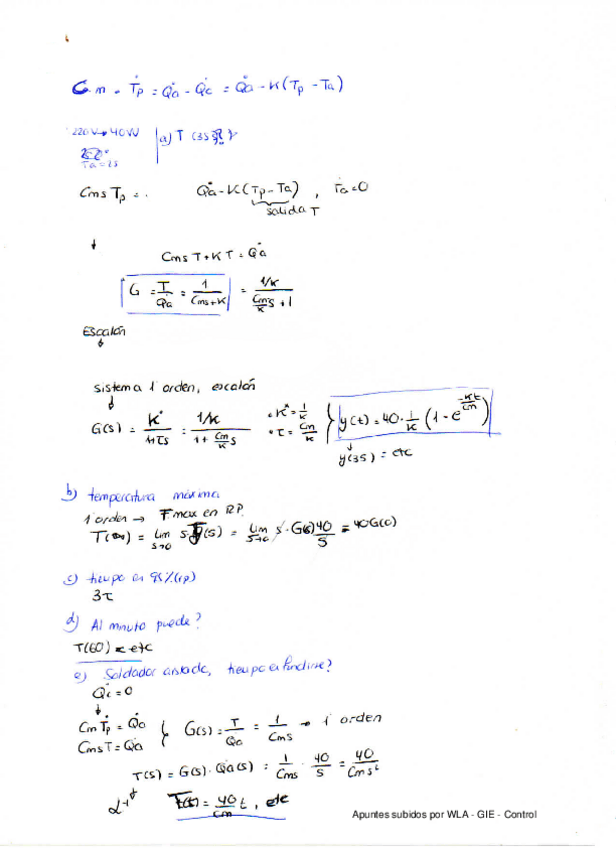 C·m · Ṫp = Q̇a - Q̇c = Q̇a - K(Tp - Ta)
220V → 40W
a) T (35
Ta = 25
CmsTp = Q̇a - K(Tp - Ta) , Ta = 0
salida T
↓
CmsT + KT = Q̇a
G = T/Q̇a = 1/(Cms+K) = (1/K)/((Cm/K)s + 1)
Escalón
↓
sistema 1 orden, escalón
↓
G(s) = K*/(1+τs) = (1/K)/(1 + (Cm/K)s) • K* = 1/K • τ = Cm/K } y(t) = 40 · 1/K (1 - e^(-Kt/Cm))
↓
y(35) = etc
b) temperatura máxima
1 orden → Tmax en RP.
T(∞) = lim s→0 s T(s) = lim s→0 s · G(s) 40/s = 40G(0)
c) tiempo en 95% (rp)
3τ
d) Al minuto puede?
T(60) = etc
e) Soldador aislado, tiempo en fundirse?
Q̇c = 0
↓
CmṪp = Q̇a
CmsT = Q̇a } G(s) = T/Qa = 1/Cms → 1 orden
T(s) = G(s) · Qa(s) = 1/Cms · 40/s = 40/Cms²
L⁻¹ ↓ T(t) = 40/Cm t, etc
Apuntes subidos por WLA - GIE - Control